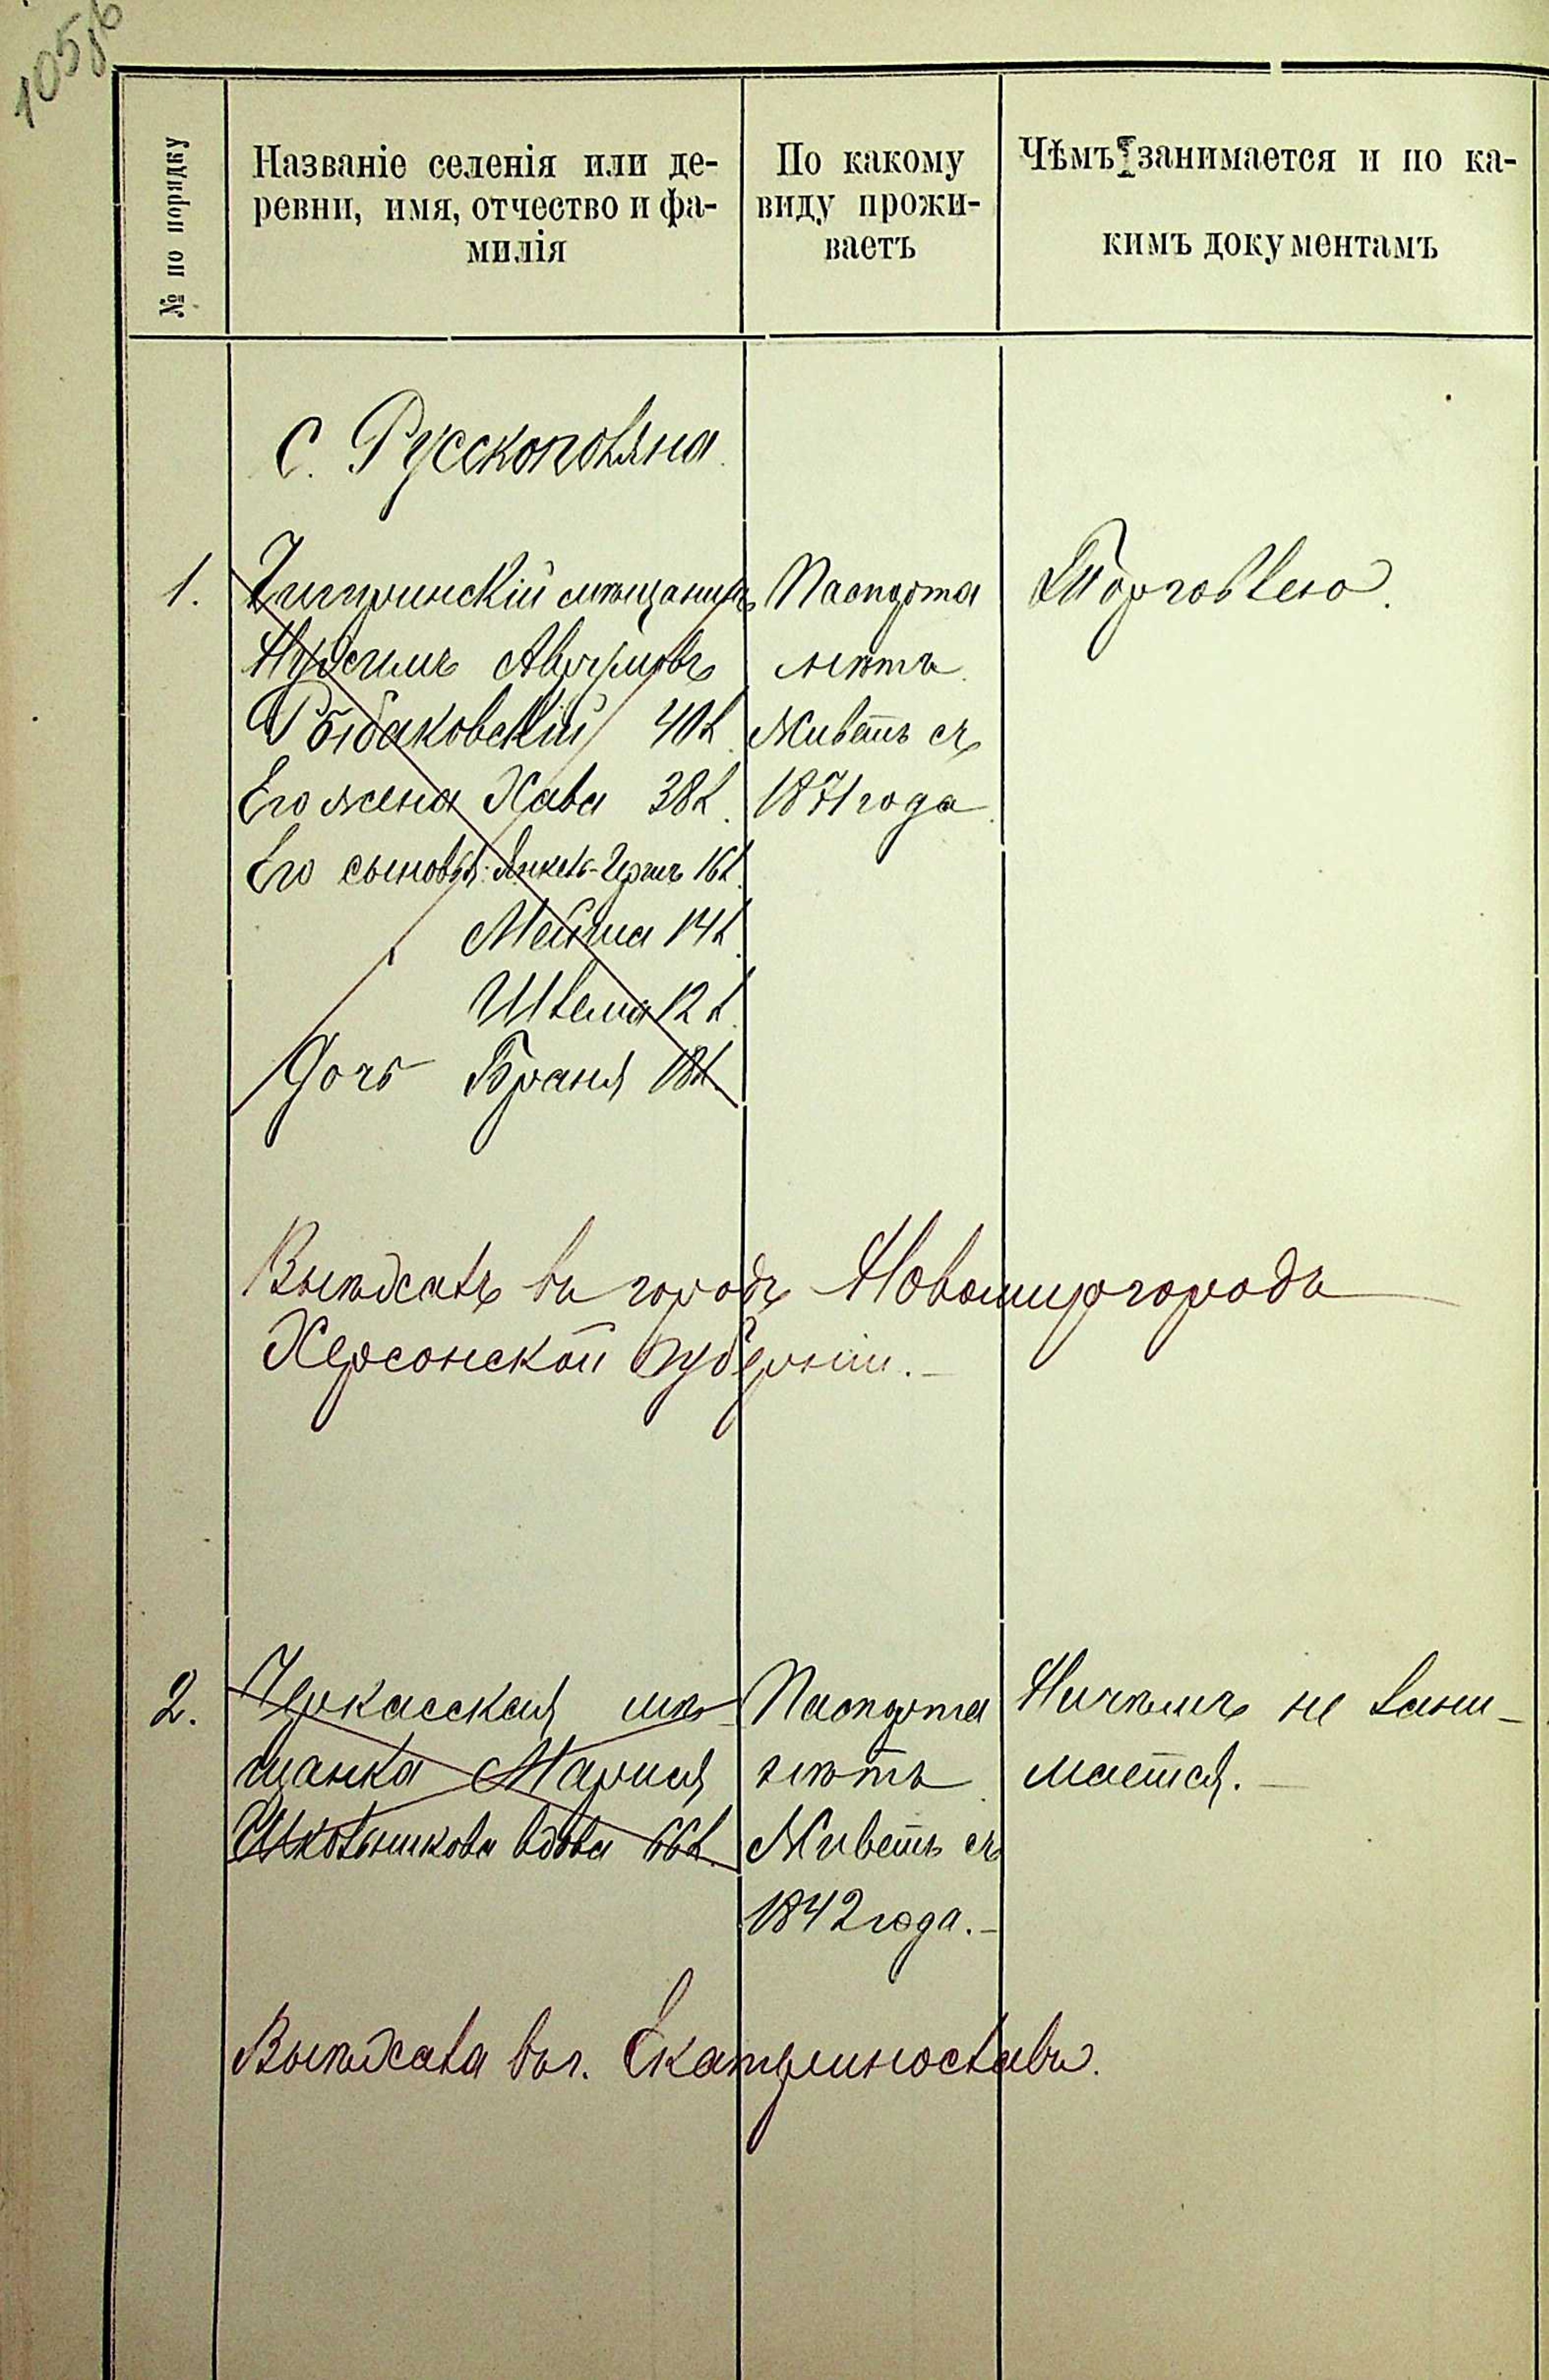 № по порядку
Названіе селенія или де-
ревни, имя, отчество и фа-
милія
По какому
виду прожи-
ваетъ
Чѣмъ занимается и по ка-
кимъ документамъ
С. Русскополяна
1.
Чигиринскій мѣщанинъ
Аврумовъ
Рыбаковскій 40 л.
Его жена Хава 38 л.
Его сыновья: Янкель-Гершъ 16 л.
14 л.
Шлема 12 л.
Дочь Браня 18 л.
Паспорта
нѣтъ.
Живетъ съ
1871 года.
Торговлею.
Выѣхалъ въ городъ Новомиргородъ
Херсонской губерніи.
2.
Черкасская мѣ-
щанка Марія
Школьникова вдова 66 л.
Паспорта
нѣтъ.
Живетъ съ
1842 года.
Ничѣмъ не зани-
мается.
Выѣхала въ г. Екатеринославъ.